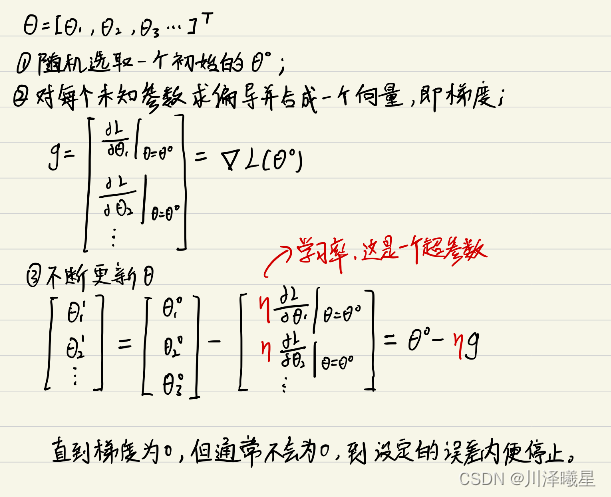 θ=[θ₁, θ₂, θ₃ ⋯]ᵀ
① 随机选取一个初始的 θ⁰;
② 对每个未知参数求偏导并合成一个向量,即梯度;
g = [ ∂L/∂θ₁|θ=θ⁰ ∂L/∂θ₂|θ=θ⁰ ⋮ ] = ∇L(θ⁰)
学习率.这是一个超参数
③ 不断更新θ
[ θ₁¹ θ₂¹ ⋮ ] = [ θ₁⁰ θ₂⁰ θ₃⁰ ] - [ η ∂L/∂θ₁|θ=θ⁰ η ∂L/∂θ₂|θ=θ⁰ ⋮ ] = θ⁰ - ηg
直到梯度为0,但通常不会为0,到设定的误差内便停止。
CSDN @川泽曦星